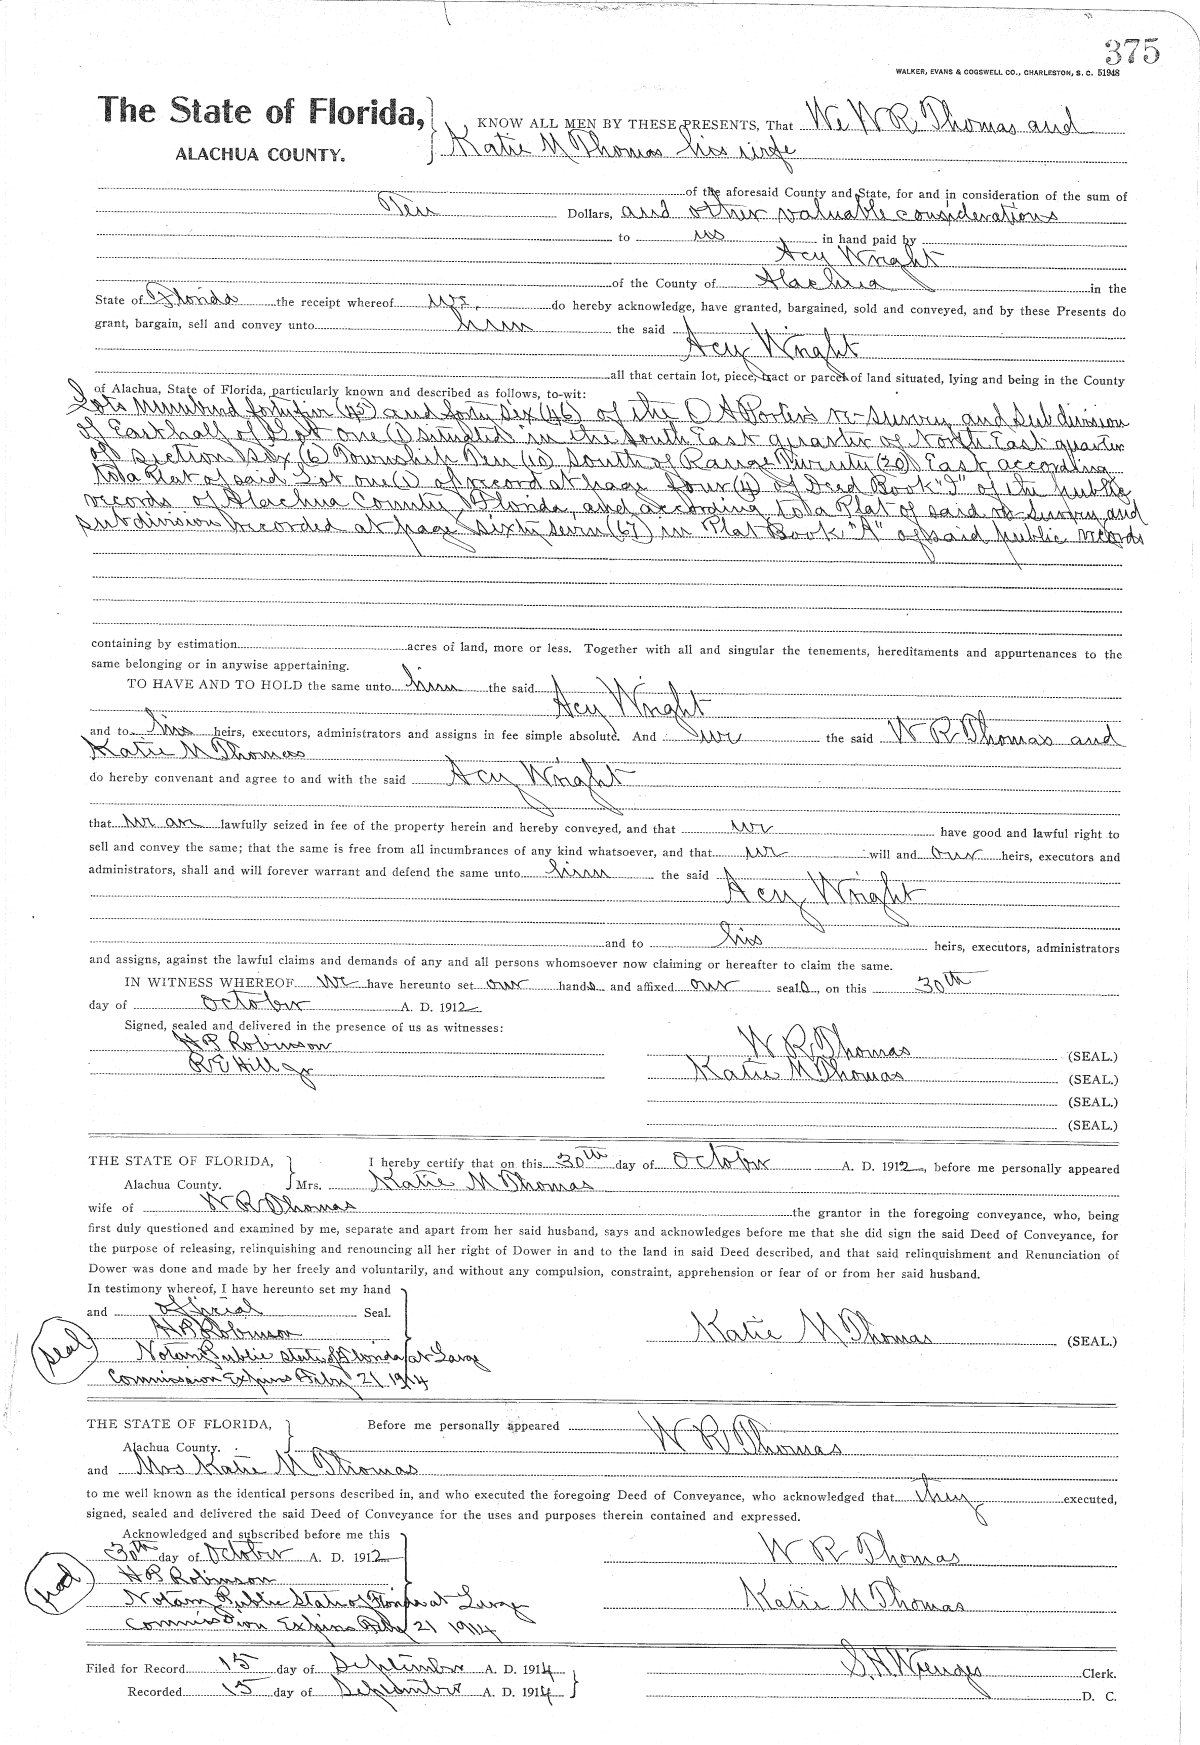 375
WALKER, EVANS & COGSWELL CO., CHARLESTON, S. C. 51948
The State of Florida, KNOW ALL MEN BY THESE PRESENTS, That We W R Thomas and
ALACHUA COUNTY. Katie M Thomas his wife
of the aforesaid County and State, for and in consideration of the sum of
Ten Dollars, and other valuable considerations
to us in hand paid by
Acy Wright
of the County of Alachua in the
State of Florida the receipt whereof we do hereby acknowledge, have granted, bargained, sold and conveyed, and by these Presents do
grant, bargain, sell and convey unto him the said Acy Wright
all that certain lot, piece, tract or parcel of land situated, lying and being in the County
of Alachua, State of Florida, particularly known and described as follows, to-wit:
Lots Numbered forty five (45) and forty six (46) of the O A Porters re-survey and Subdivision
of East half of Lot one (1) situated in the South East quarter of North East quarter
of section Six (6) Township Ten (10) South of Range Twenty (20) East according
to a Plat of said Lot one (1) of record at page four (4) of Deed Book "I" of the public
records of Alachua County, Florida, and according to a Plat of said re-survey and
subdivision recorded at page sixty seven (67) in Plat Book "A" of said public records
containing by estimation acres of land, more or less. Together with all and singular the tenements, hereditaments and appurtenances to the
same belonging or in anywise appertaining.
TO HAVE AND TO HOLD the same unto him the said Acy Wright
and to his heirs, executors, administrators and assigns in fee simple absolute. And we the said W R Thomas and
Katie M Thomas
do hereby convenant and agree to and with the said Acy Wright
that we are lawfully seized in fee of the property herein and hereby conveyed, and that we have good and lawful right to
sell and convey the same; that the same is free from all incumbrances of any kind whatsoever, and that we will and our heirs, executors and
administrators, shall and will forever warrant and defend the same unto him the said Acy Wright
and to his heirs, executors, administrators
and assigns, against the lawful claims and demands of any and all persons whomsoever now claiming or hereafter to claim the same.
IN WITNESS WHEREOF we have hereunto set our hands and affixed our seals, on this 30th
day of October A. D. 1912
Signed, sealed and delivered in the presence of us as witnesses:
H P Robinson W R Thomas (SEAL.)
R E Hill Jr Katie M Thomas (SEAL.)
(SEAL.)
(SEAL.)
THE STATE OF FLORIDA, I hereby certify that on this 30th day of October A. D. 1912, before me personally appeared
Alachua County. Mrs. Katie M Thomas
wife of W R Thomas the grantor in the foregoing conveyance, who, being
first duly questioned and examined by me, separate and apart from her said husband, says and acknowledges before me that she did sign the said Deed of Conveyance, for
the purpose of releasing, relinquishing and renouncing all her right of Dower in and to the land in said Deed described, and that said relinquishment and Renunciation of
Dower was done and made by her freely and voluntarily, and without any compulsion, constraint, apprehension or fear of or from her said husband.
In testimony whereof, I have hereunto set my hand
and official Seal.
H P Robinson Katie M Thomas (SEAL.)
seal Notary Public State of Florida at Large
Commission Expires Feby 21 1914
THE STATE OF FLORIDA, Before me personally appeared W R Thomas
Alachua County.
and Mrs Katie M Thomas
to me well known as the identical persons described in, and who executed the foregoing Deed of Conveyance, who acknowledged that they executed,
signed, sealed and delivered the said Deed of Conveyance for the uses and purposes therein contained and expressed.
Acknowledged and subscribed before me this
30th day of October A. D. 1912 W R Thomas
seal H P Robinson
Notary Public State of Florida at Large Katie M Thomas
Commission Expires Feby 21 1914
Filed for Record 15 day of September A. D. 1914 S. H. Wienges Clerk.
Recorded 15 day of September A. D. 1914 D. C.